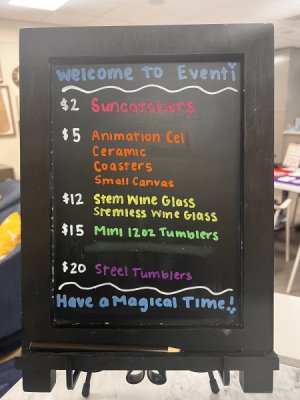 Welcome To Eventi
$2 Suncatchers
$5 Animation Cel
Ceramic
Coasters
Small Canvas
$12 Stem Wine Glass
Stemless Wine Glass
$15 Mini 12oz Tumblers
$20 Steel Tumblers
Have a Magical Time!